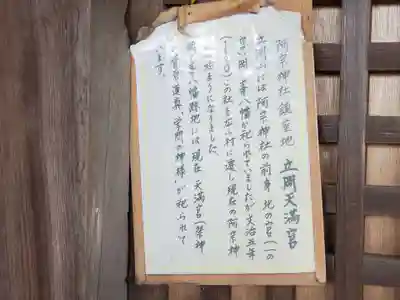 阿宗神社鎮座地 立岡天満宮
立岡山には阿宗神社の前身 北の宮(一の
宮)岡ノ峯八幡が祀られていましたが文治五年
(一一八九)この社を広山村に遷し現在の阿宗神
社の始まりになりました。
八幡跡地には現在 天満宮(祭神
菅原道真、学問の神様)が祀られて
います。